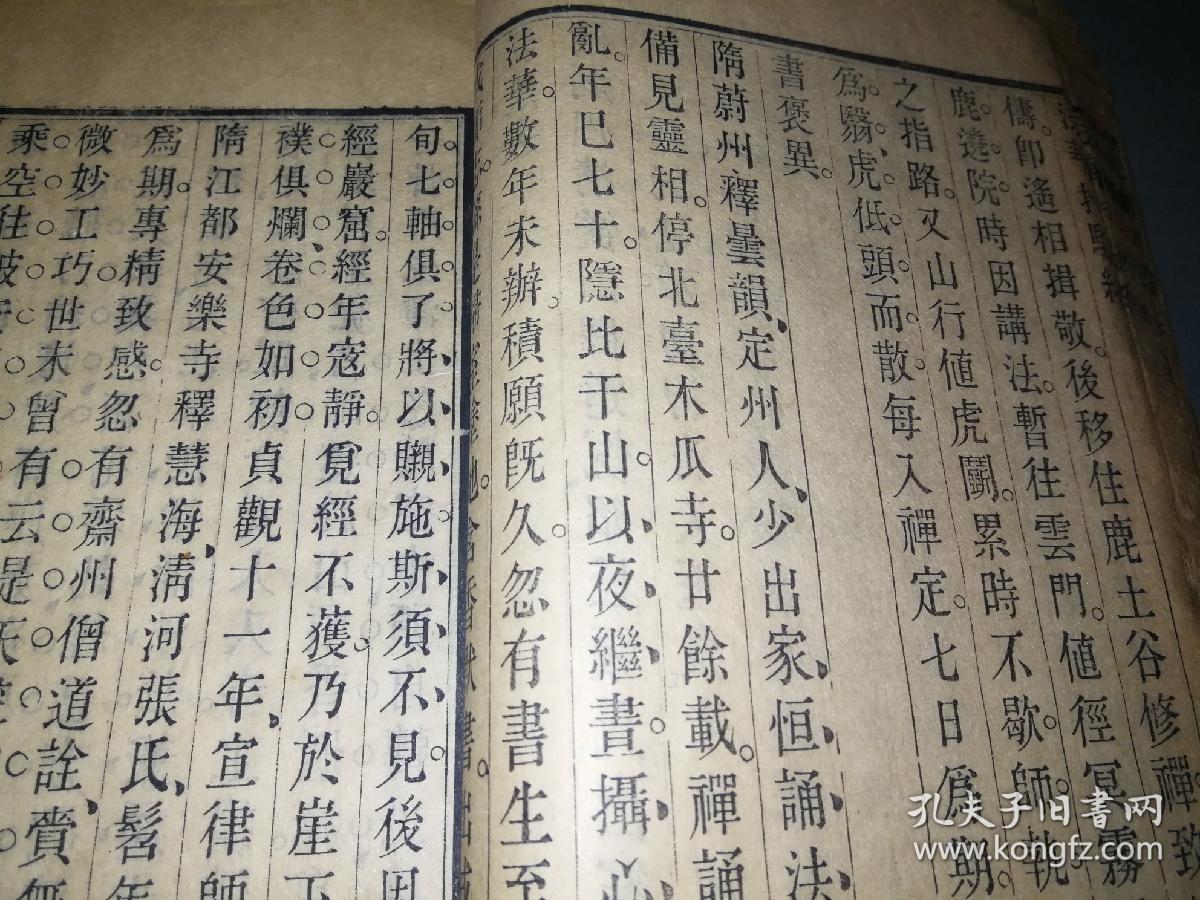 傭。即遙相揖敬。後移住鹿土谷修禪。
鹿遶院。時因講法。暫往雲門。値徑冥霧
之指路。又山行値虎鬬。累時不歇。師執
爲翳、虎。低。頭。而。散。每入禪定。七日爲期。
書褒異。
隋蔚州釋曇韻、定州人、少出家、恒誦法、
備見靈相。停北臺木瓜寺。廿餘載。禪誦
亂。年巳七十。隱比干山。以夜繼晝。攝心
法華。數年未辦。積願既久。忽有書生至
旬。七軸俱了、將以嚫施、斯須不見。後因
經巖窟。經年寇靜。覓經不獲。乃於崖下
襆俱爛。卷色如初。貞觀十一年、宣律師
隋江都安樂寺釋慧海、淸河張氏、髫年
爲期。專精致感。忽有齋州僧道詮、賫
微妙工巧。世未曾有。云是天
乘空往彼
孔夫子旧书网
www.kongfz.com